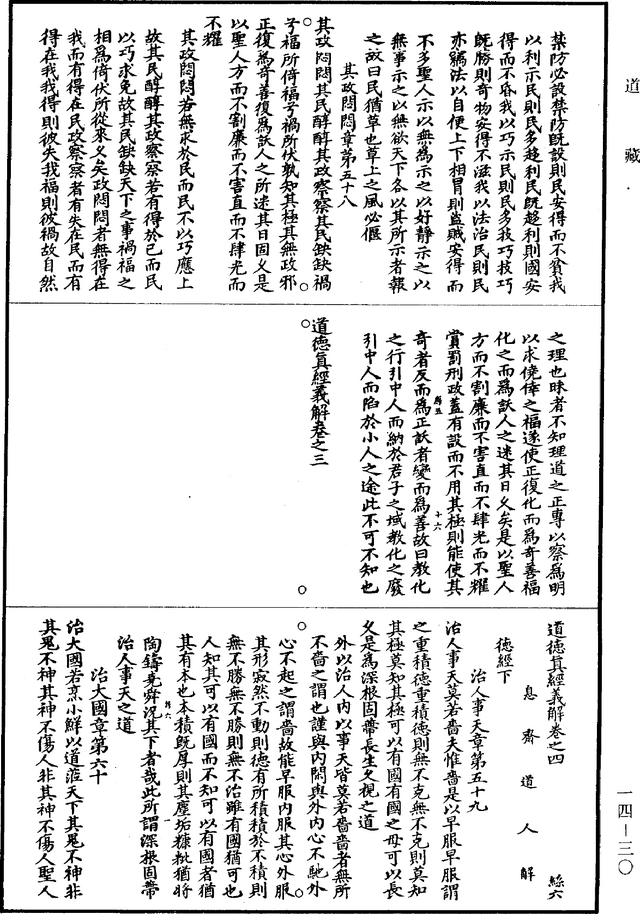 道藏
一四—三〇
禁防必設禁防既設則民安得而不貧我
以利示民則民多趨利民既趨利則國安
得而不昏我以巧示民則民多技巧技巧
既勝則奇物安得不滋我以法治民則民
亦竊法以自便上下相冒則盜賊安得而
不多聖人示以無為示之以好靜示之以
無事示之以無欲天下各以其所示者報
之故曰民猶草也草上之風必偃
其政悶悶章第五十八
其政悶悶其民醇醇其政察察其民缺缺禍
兮福所倚福兮禍所伏孰知其極其無政邪
正復為奇善復為訞人之所迷其日固久是
以聖人方而不割廉而不害直而不肆光而
不耀
其政悶悶若無求於民而民不以巧應上
故其民醇醇其政察察若有得於己而民
以巧求免故其民缺缺天下之事禍福之
相為倚伏所從來久矣政悶悶者無得在
我而有得在民政察察者有失在民而有
得在我我得則彼失我福則彼禍故自然
之理也昧者不知理道之正專以察為明
以求僥倖之福遂使正復化而為奇善復
化之而為訞人之迷其日久矣是以聖人
方而不割廉而不害直而不肆光而不耀
賞罰刑政蓋有設而不用其極則能使其
奇者反而為正訞者變而為善故曰教化
之行引中人而納於君子之域教化之廢
引中人而陷於小人之途此不可不知也
道德真經義解卷之三
道德真經義解卷之四
絲六
息齋道人解
德經下
治人事天章第五十九
治人事天莫若嗇夫惟嗇是以早服早服謂
之重積德重積德則無不克無不克則莫知
其極莫知其極可以有國有國之母可以長
久是為深根固蔕長生久視之道
外以治人內以事天皆莫若嗇嗇者無所
不嗇之謂也謹與內閑與外內心不馳外
心不起之謂嗇故能早服內服其心外服
其形寂然不動則德有所積積於不積則
無不勝無不勝則無不治雖有國猶可也
人知其可以有國而不知可以有國者猶
其有本也本積既厚則其塵垢糠粃猶將
陶鑄堯舜況其下者哉此所謂深根固蔕
治人事天之道
治大國章第六十
治大國若烹小鮮以道莅天下其鬼不神非
其鬼不神其神不傷人非其神不傷人聖人